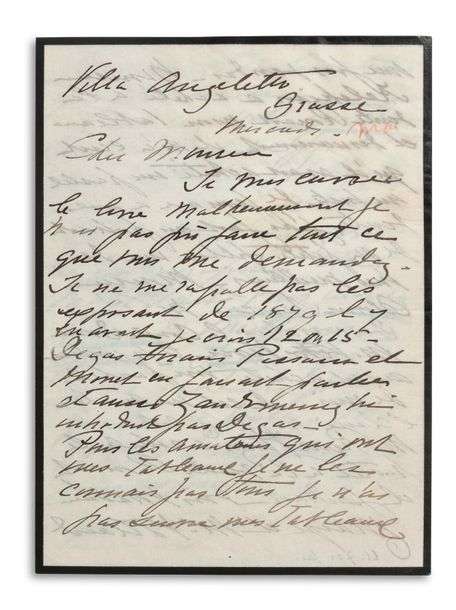 Villa Angeletto
Grasse
Mercredi.
Cher Monsieur
Je vous envoie
le livre malheureusement je
n'ai pas pu faire tout ce
que vous me demandez.
Je ne me rapelle pas les
exposant de 1879 il y
en avait je crois 12 ou 15-
Degas Pissarro et
Monet en faisait parties
et aussi Zandomeneghi
introduit pas Degas.
Pour les amateurs qui ont
mes Tableaux je ne les
connais pas tous je n'ai
pas suivre mes Tableaux